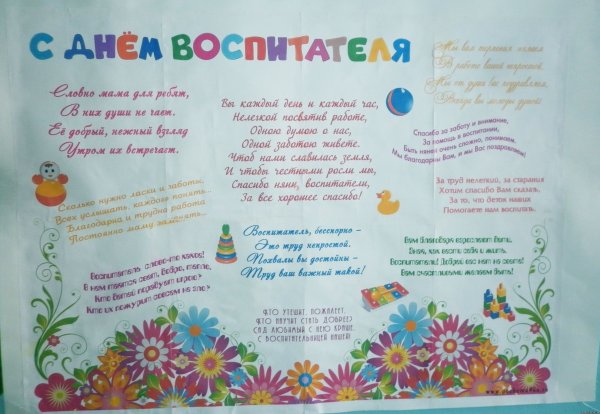 С ДНЁМ ВОСПИТАТЕЛЯ
Словно мама для ребят,
В них души не чает.
Её добрый, нежный взгляд
Утром их встречает.
Вы каждый день и каждый час,
Нелегкой посвятив работе,
Одною думою о нас,
Одной заботою живете.
Чтоб нами славилась земля,
И чтобы честными росли мы,
Спасибо няни, воспитатели,
За все хорошее спасибо!
Мы вам
В работе вашей
Мы от души вас поздравляем,
Спасибо за заботу и внимание,
За помощь в воспитании,
Быть няней очень сложно, понимаем.
Мы благодарны Вам, и мы Вас поздравляем!
За труд нелегкий, за старания
Хотим спасибо Вам сказать,
За то, что деток наших
Помогаете нам воспитать.
Сколько нужно ласки и заботы,
Всех услышать, каждого понять...
Благодарна и трудна работа
Постоянно маму заменять...
Воспитатель, бесспорно –
Это труд непростой.
Похвалы вы достойны –
Труд ваш важный такой!
Воспитатель, слово-то какое!
В нем таятся свет, добро, тепло,
Кто детей порадует игрою?
Кто их пожурит совсем не зло?
Вам благодаря взрослеют дети,
Зная, как вести себя и жить.
Воспитатель! Добрей вас нет на свете!
Вам счастливыми желаем быть!
КТО УТЕШИТ, ПОЖАЛЕЕТ,
КТО НАУЧИТ СТАТЬ ДОБРЕЕ?
САД ЛЮБИМЫЙ С НЕЮ КРАШЕ,
С ВОСПИТАТЕЛЬНИЦЕЙ НАШЕЙ!